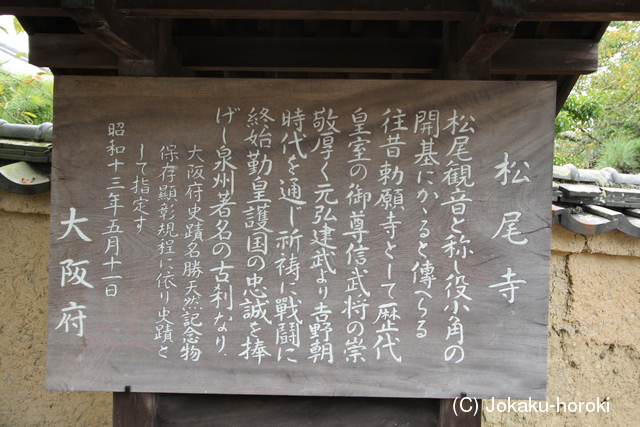 松尾寺
松尾観音と称し役小角の
開基にかゝると傳へらる
往昔勅願寺として歴代
皇室の御尊信武将の崇
敬厚く元弘建武より吉野朝
時代を通じ祈祷に戰闘に
終始勤皇護国の忠誠を捧
げし泉州著名の古刹なり.
大阪府史蹟名勝天然記念物
保存顕彰規程に依り史蹟と
して指定す
昭和十三年五月十一日
大阪府
(C) Jokaku-horoki